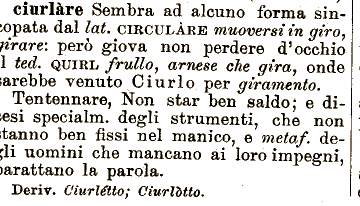 ciurlàre Sembra ad alcuno forma sin-
copata dal lat. CIRCULÀRE muoversi in giro,
girare: però giova non perdere d'occhio
il ted. QUIRL frullo, arnese che gira, onde
sarebbe venuto Ciurlo per giramento.
Tentennare, Non star ben saldo; e di-
cesi specialm. degli strumenti, che non
stanno ben fissi nel manico, e metaf. de-
gli uomini che mancano ai loro impegni,
barattano la parola.
Deriv. Ciurlétto; Ciurlòtto.